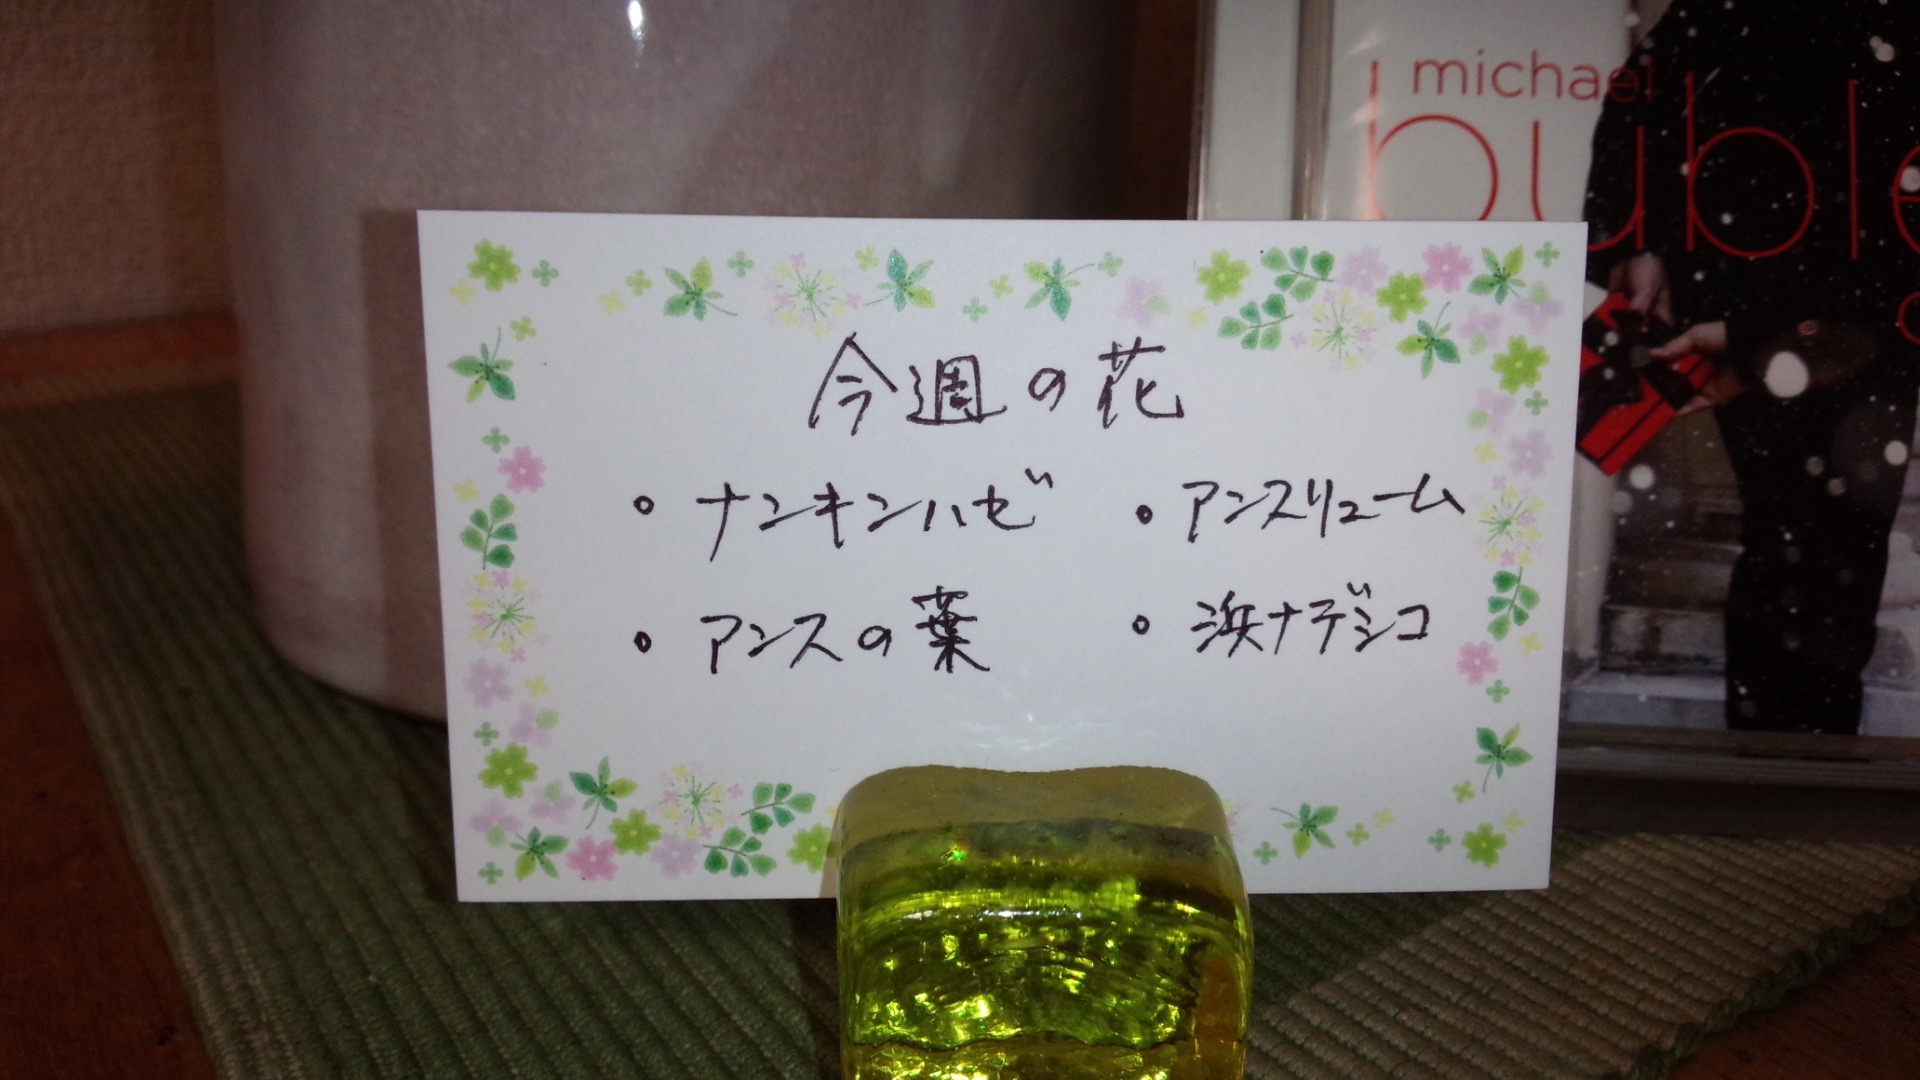 michael
buble
今週の花
・ナンキンハゼ ・アンスリューム
・アンスの葉 ・浜ナデシコ